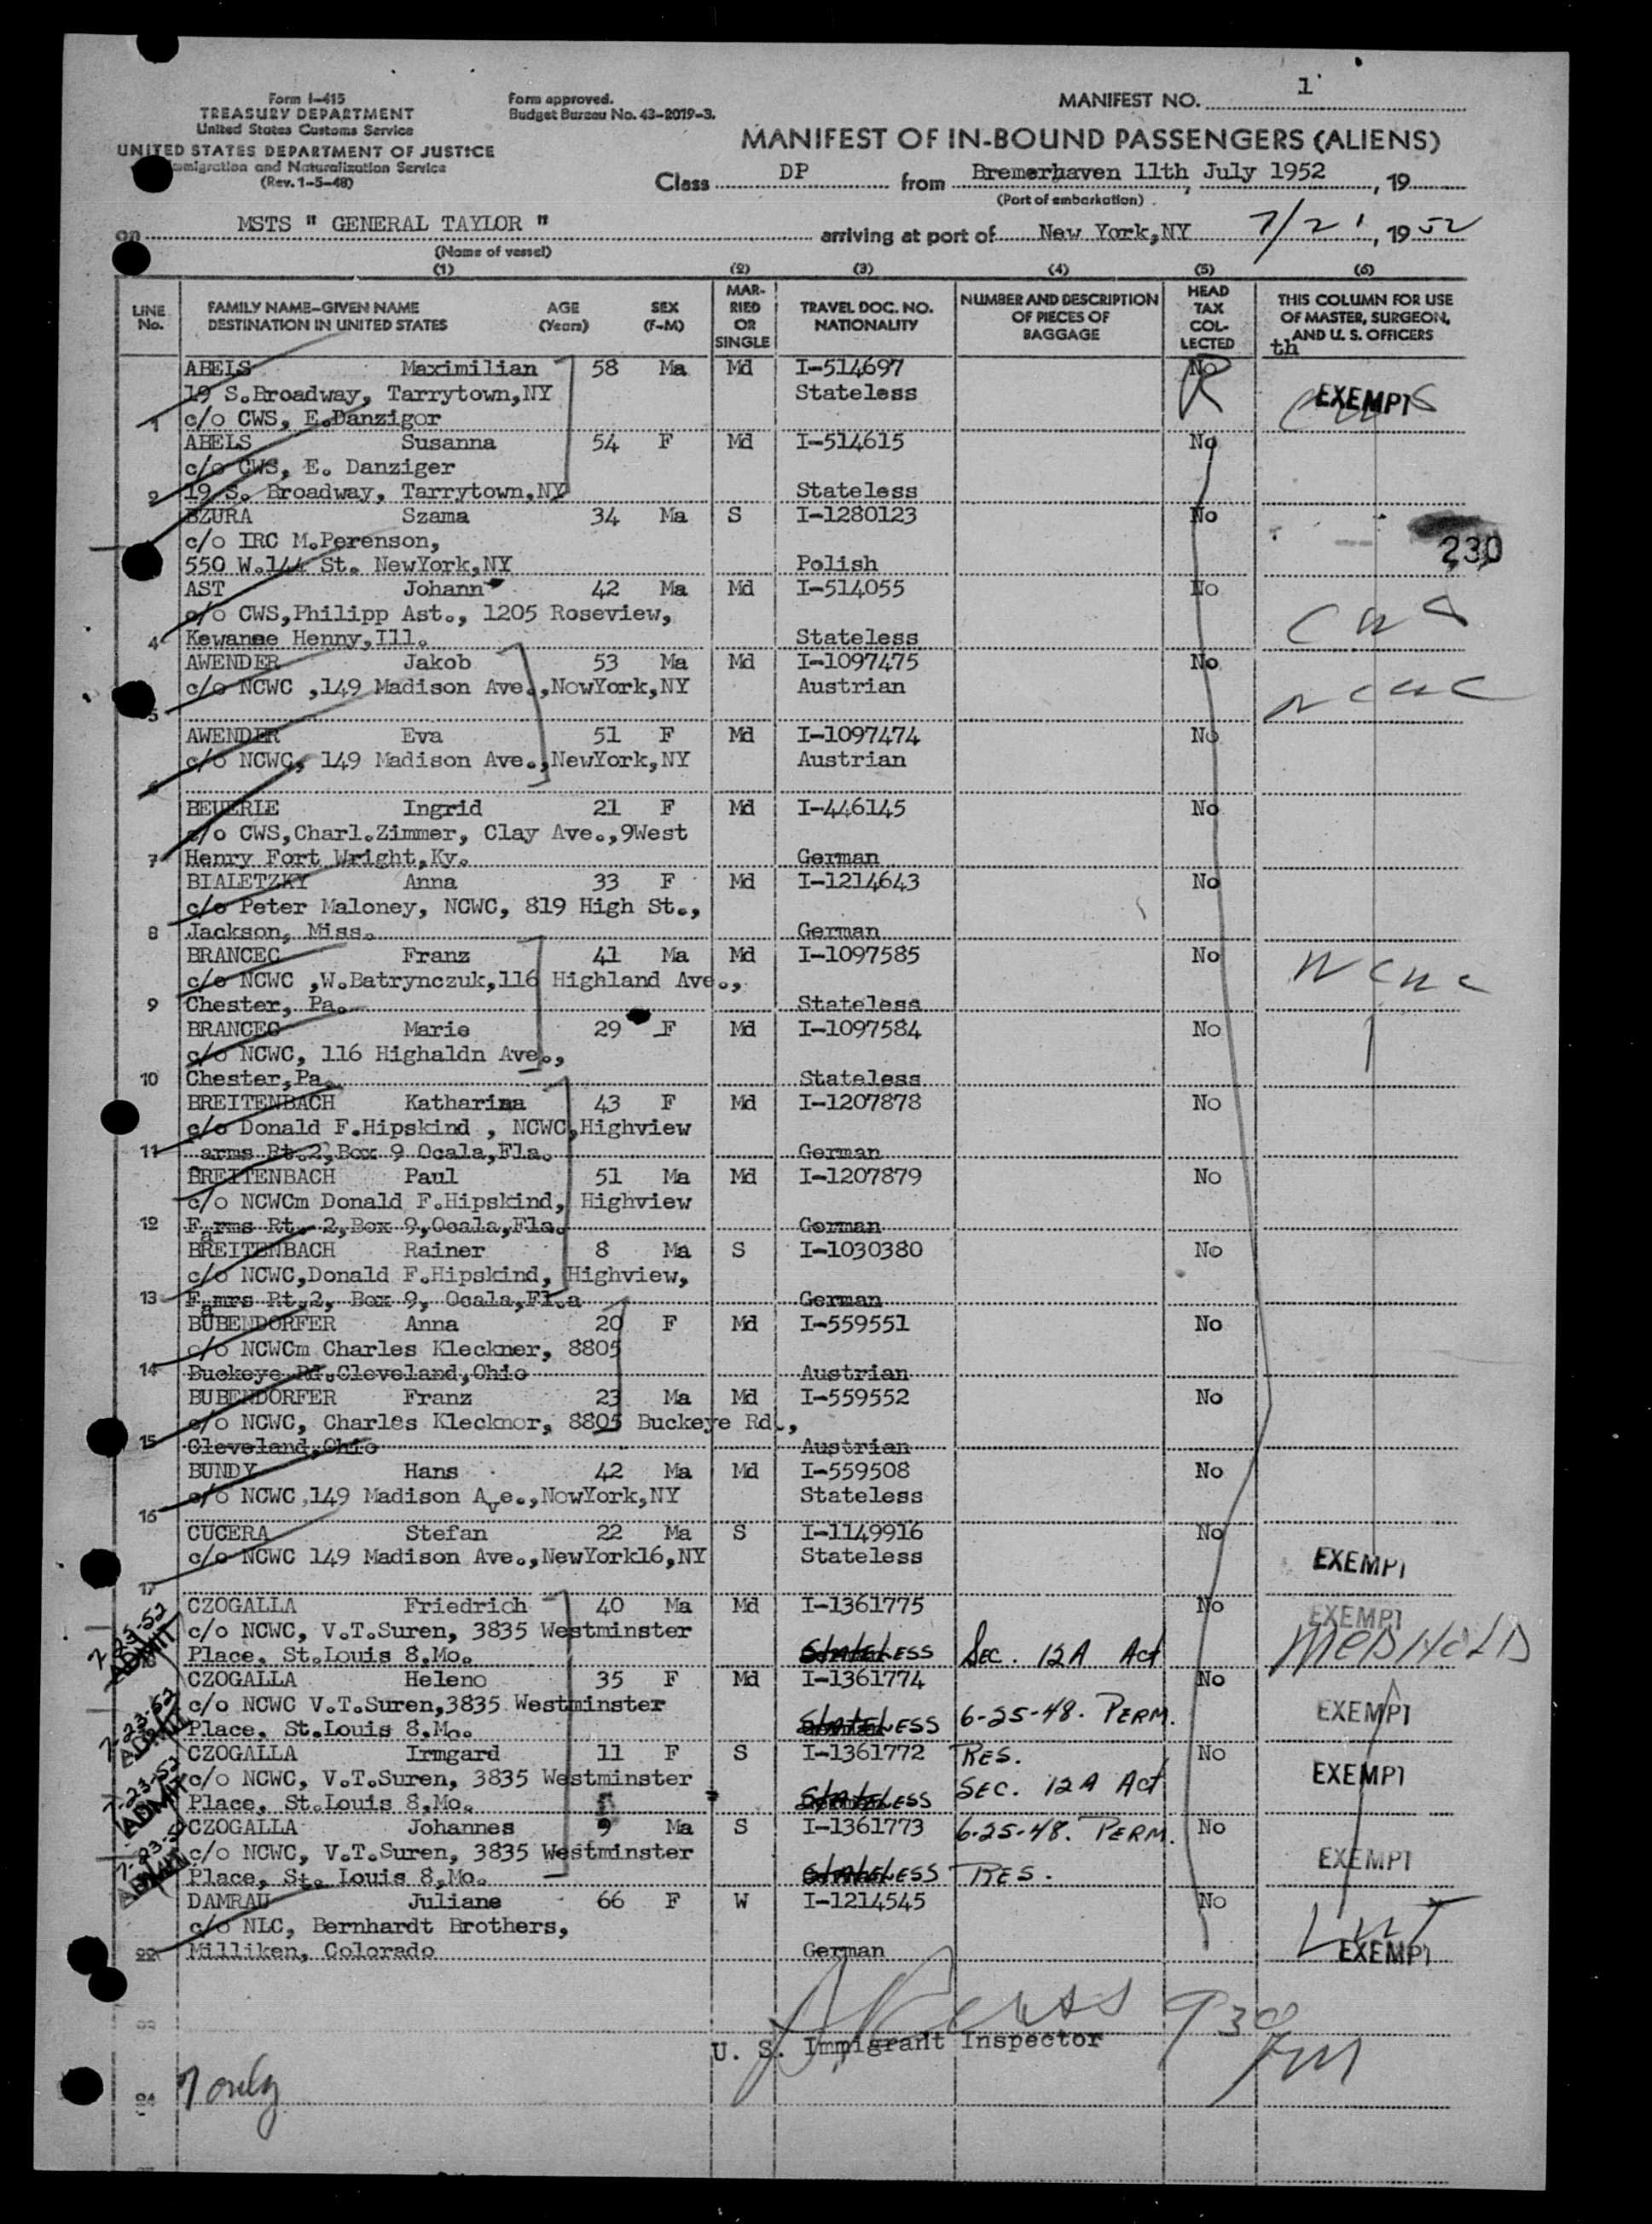 Form I-415
TREASURY DEPARTMENT
United States Customs Service
UNITED STATES DEPARTMENT OF JUSTICE
Immigration and Naturalization Service
(Rev. 1-5-48)
Form approved.
Budget Bureau No. 43-2019-3.
MANIFEST NO. 1
MANIFEST OF IN-BOUND PASSENGERS (ALIENS)
Class DP from Bremerhaven 11th, July 1952, 19
(Port of embarkation)
on MSTS " GENERAL TAYLOR " arriving at port of New York,NY 7/21, 1952
(Name of vessel)
(1) (2) (3) (4) (5) (6)
LINE No. FAMILY NAME-GIVEN NAME DESTINATION IN UNITED STATES AGE (Years) SEX (F-M) MARRIED OR SINGLE TRAVEL DOC. NO. NATIONALITY NUMBER AND DESCRIPTION OF PIECES OF BAGGAGE HEAD TAX COLLECTED THIS COLUMN FOR USE OF MASTER, SURGEON, AND U. S. OFFICERS
th
ABELS Maximilian 58 Ma Md I-514697 No
19 S.Broadway, Tarrytown,NY Stateless R EXEMPT CWS
1 c/o CWS, E.Danzigor
ABELS Susanna 54 F Md I-514615 No
c/o CWS, E. Danziger
2 19 S. Broadway, Tarrytown,NY Stateless
BZURA Szama 34 Ma S I-1280123 No
c/o IRC M.Perenson, 230
550 W.144 St. NewYork,NY Polish
AST Johann 42 Ma Md I-514055 No
c/o CWS,Philipp Ast., 1205 Roseview, CWS
4 Kewanee Henny,Ill. Stateless
AWENDER Jakob 53 Ma Md I-1097475 No
c/o NCWC ,149 Madison Ave.,NowYork,NY Austrian NCWC
5
AWENDER Eva 51 F Md I-1097474 No
c/o NCWC, 149 Madison Ave.,NewYork,NY Austrian
6
BEUERLE Ingrid 21 F Md I-446145 No
c/o CWS,Charl.Zimmer, Clay Ave.,9West
7 Henry Fort Wright,Ky. German
BIALETZKY Anna 33 F Md I-1214643 No
c/o Peter Maloney, NCWC, 819 High St.,
8 Jackson, Miss. German
BRANCEC Franz 41 Ma Md I-1097585 No
c/o NCWC ,W.Batrynczuk,116 Highland Ave., NCWC
9 Chester, Pa. Stateless
BRANCEC Marie 29 F Md I-1097584 No
c/o NCWC, 116 Highaldn Ave.,
10 Chester,Pa. Stateless
BREITENBACH Katharina 43 F Md I-1207878 No
c/o Donald F.Hipskind , NCWC,Highview
11 arms Rt.2,Box 9 Ocala,Fla. German
BREITENBACH Paul 51 Ma Md I-1207879 No
c/o NCWCm Donald F.Hipskind, Highview
12 Farms Rt. 2,Box 9,Ocala,Fla. German
BREITENBACH Rainer 8 Ma S I-1030380 No
c/o NCWC,Donald F.Hipskind, Highview,
13 Famrs Rt.2, Box 9, Ocala,Fl.a German
BUBENDORFER Anna 20 F Md I-559551 No
c/o NCWCm Charles Kleckner, 8805
14 Buckeye Rd.Cleveland,Ohio Austrian
BUBENDORFER Franz 23 Ma Md I-559552 No
c/o NCWC, Charles Klecknor, 8805 Buckeye Rd.,
15 Cleveland,Ohio Austrian
BUNDY Hans 42 Ma Md I-559508 No
c/o NCWC,149 Madison Ave.,NowYork,NY Stateless
16
CUCERA Stefan 22 Ma S I-1149916 No
c/o NCWC 149 Madison Ave.,NewYork16,NY Stateless EXEMPT
17
CZOGALLA Friedrich 40 Ma Md I-1361775 No EXEMPT
7-23-52 c/o NCWC, V.T.Suren, 3835 Westminster MED HOLD
ADMIT Place, St.Louis 8,Mo. STATELESS SEC. 12A Act
CZOGALLA Heleno 35 F Md I-1361774 No
7-23-52 c/o NCWC V.T.Suren,3835 Westminster EXEMPT
ADMIT Place, St.Louis 8,Mo. STATELESS 6-25-48. PERM.
CZOGALLA Irmgard 11 F S I-1361772 RES. No
7-23-52 c/o NCWC, V.T.Suren, 3835 Westminster SEC. 12A Act EXEMPT
ADMIT Place, St.Louis 8,Mo. STATELESS
CZOGALLA Johannes 9 Ma S I-1361773 6-25-48. PERM. No
7-23-5 c/o NCWC, V.T.Suren, 3835 Westminster EXEMPT
ADMIT Place, St. Louis 8,Mo. STATELESS RES.
DAMRAU Juliane 66 F W I-1214545 No
c/o NLC, Bernhardt Brothers, LWF
22 Milliken, Colorado German EXEMPT
23
U. S. Immigrant Inspector 930
24 only